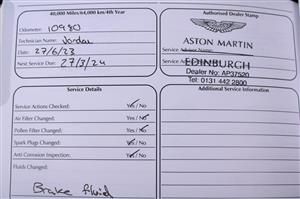 40,000 Miles/64,000 km/4th Year
Odometer: 10980
Technician Name: Jordan
Date: 27/6/23
Next Service Due: 27/3/24
Authorised Dealer Stamp
ASTON MARTIN
Service Advisor Name:
EDINBURGH
Dealer No: AP37520
Tel: 0131 442 2800
Service Details
Service Actions Checked: Yes/No
Air Filter Changed: Yes/No
Pollen Filter Changed: Yes/No
Spark Plugs Changed: Yes/No
Anti Corrosion Inspection: Yes/No
Fluids Changed:
Brake fluid
Additional Service Information